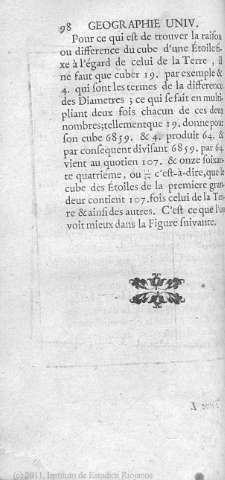 98 GEOGRAPHIE UNIV.
Pour ce qui est de trouver la raison
ou difference du cube d'une Étoile fi-
xe à l'égard de celui de la Terre, il
ne faut que cuber 19. par exemple &
4. qui sont les termes de la difference
des Diametres ; ce qui se fait en multi-
pliant deux fois chacun de ces deux
nombres; tellement que 19. donne pour
son cube 6859. & 4. produit 64. &
par consequent divisant 6859. par 64
vient au quotien 107. & onze soixan-
te quatriéme, ou c'est-à-dire, que le
cube des Étoiles de la premiere gran-
deur contient 107. fois celui de la Ter-
re & ainsi des autres. C'est ce que l'on
voit mieux dans la Figure suivante.
(c) 2011, Instituto de Estudios Riojanos